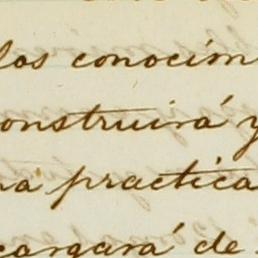 los conocim
onstruirá y
na practica
cargará de